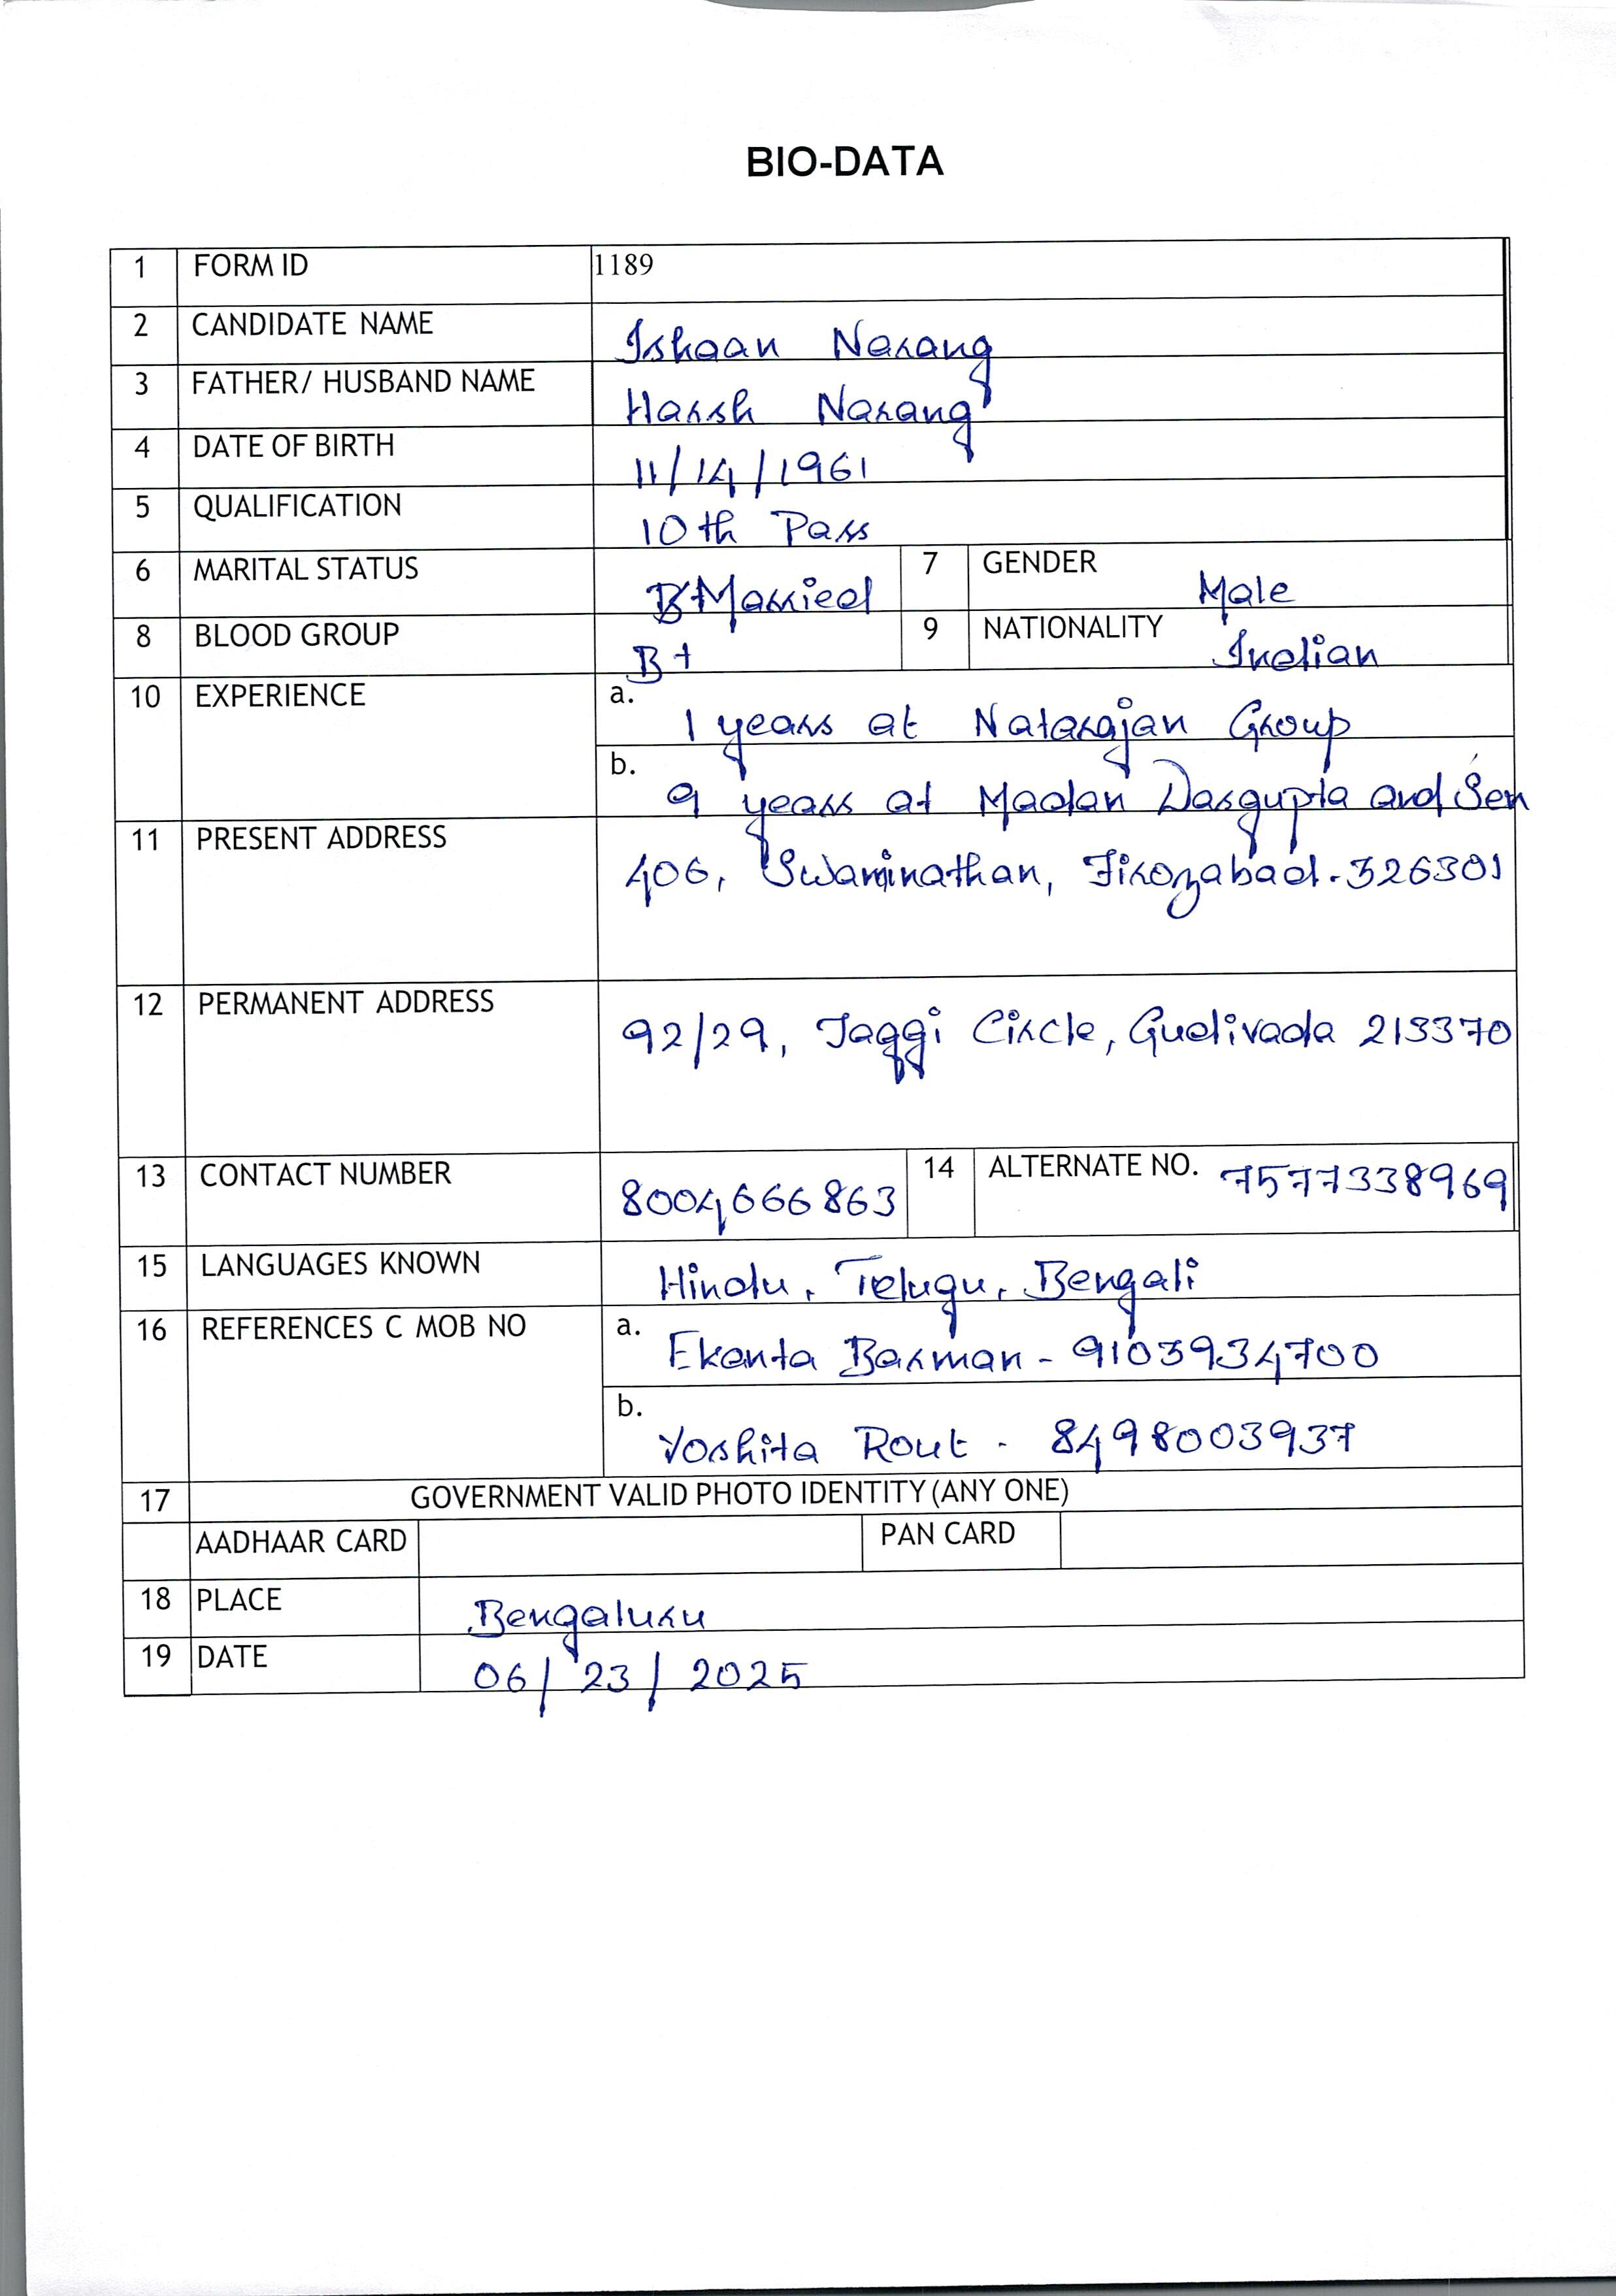 BIO-DATA
1 FORM ID 1189
2 CANDIDATE NAME Ishaan Narang
3 FATHER/ HUSBAND NAME Harsh Narang
4 DATE OF BIRTH 11/14/1961
5 QUALIFICATION 10th Pass
6 MARITAL STATUS Married 7 GENDER Male
8 BLOOD GROUP B+ 9 NATIONALITY Indian
10 EXPERIENCE a. 1 years at Natarajan Group
b. 9 years at Madan Dasgupta and Sen
11 PRESENT ADDRESS 406, Swaminathan, Firozabad. 326301
12 PERMANENT ADDRESS 92/29, Jaggi Circle, Gudivada 213370
13 CONTACT NUMBER 8004666863 14 ALTERNATE NO. 7577338969
15 LANGUAGES KNOWN Hindu, Telugu, Bengali
16 REFERENCES C MOB NO a. Ekanta Barman - 9103934700
b. Yoshita Rout - 8498003937
17 GOVERNMENT VALID PHOTO IDENTITY (ANY ONE)
AADHAAR CARD PAN CARD
18 PLACE Bengaluru
19 DATE 06/23/2025